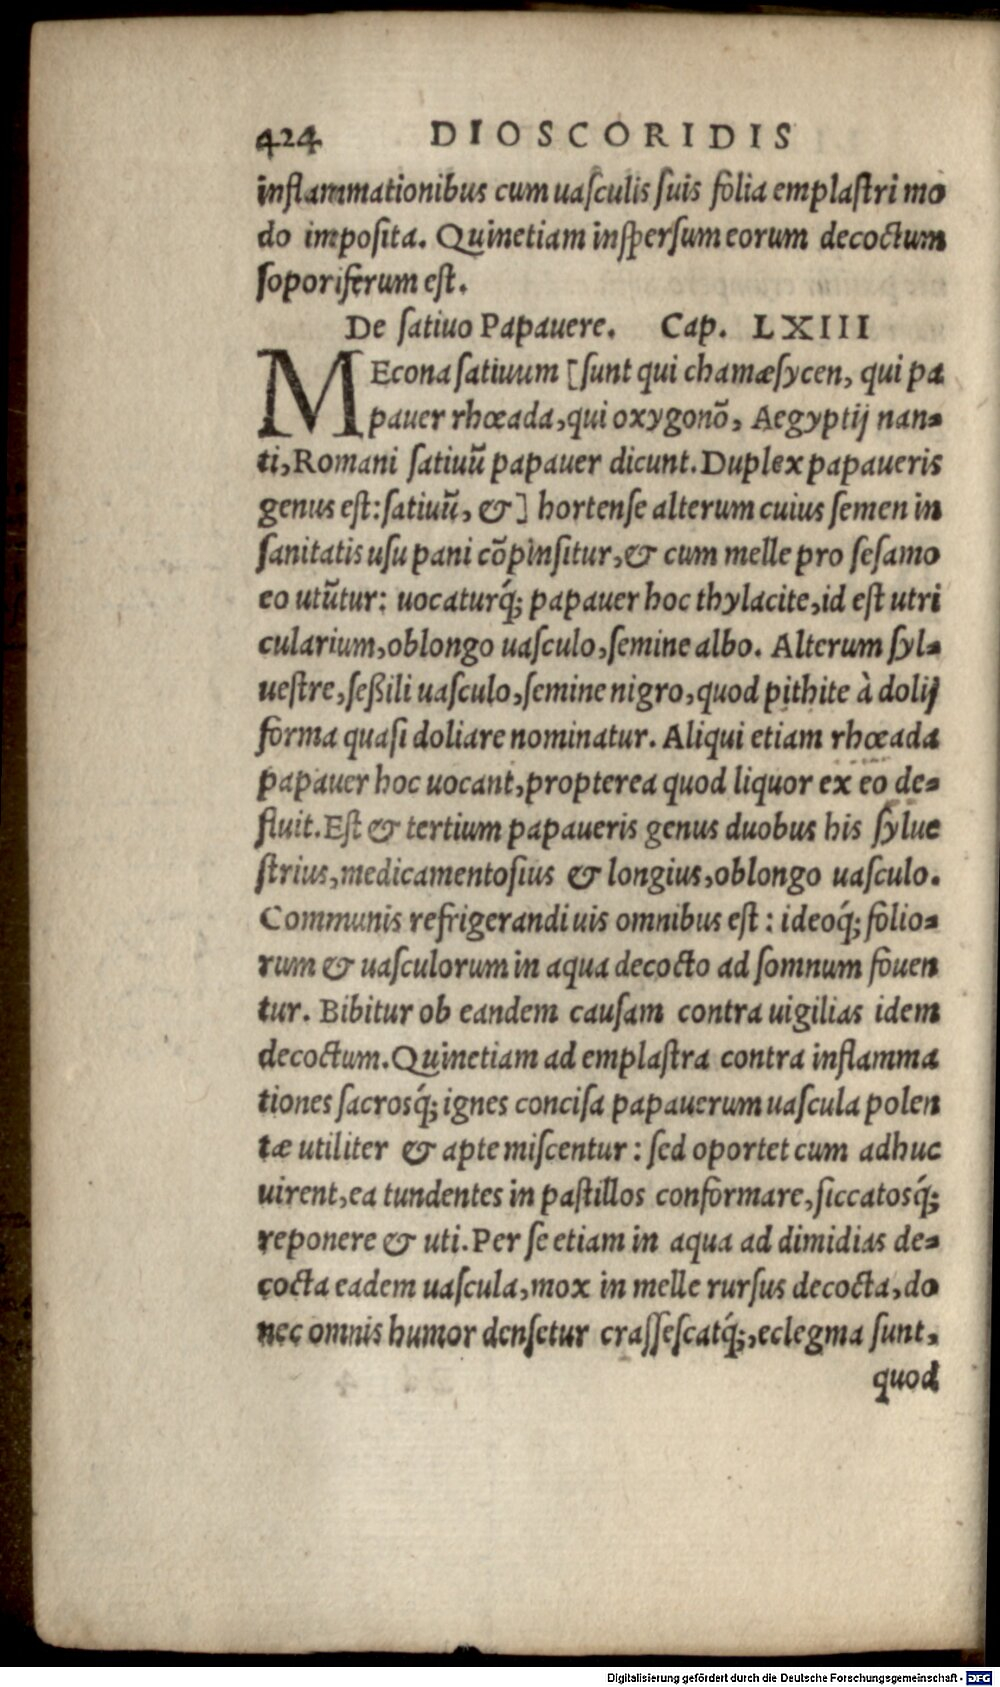 424 DIOSCORIDIS
inflammationibus cum uaſculis ſuis folia emplaſtri mo
do impoſita. Quinetiam inſperſum eorum decoctum
ſoporiferum eſt.
De ſatiuo Papauere. Cap. LXIII
MEcona ſatiuum [ſunt qui chamæſycen, qui pa
pauer rhœada, qui oxygonō, Aegyptij nan-
ti, Romani ſatiuū papauer dicunt. Duplex papaueris
genus eſt: ſatiuū, &] hortenſe alterum cuius ſemen in
ſanitatis uſu pani cōpinſitur, & cum melle pro ſeſamo
eo utūtur: uocaturq́; papauer hoc thylacite, id eſt utri
cularium, oblongo uaſculo, ſemine albo. Alterum ſyl-
ueſtre, ſeßili uaſculo, ſemine nigro, quod pithite à dolij
forma quaſi doliare nominatur. Aliqui etiam rhœada
papauer hoc uocant, propterea quod liquor ex eo de-
fluit. Eſt & tertium papaueris genus duobus his ſylue
ſtrius, medicamentoſius & longius, oblongo uaſculo.
Communis refrigerandi uis omnibus eſt: ideoq́; folio-
rum & uaſculorum in aqua decocto ad ſomnum fouen
tur. Bibitur ob eandem cauſam contra uigilias idem
decoctum. Quinetiam ad emplaſtra contra inflamma
tiones ſacrosq́; ignes conciſa papauerum uaſcula polen
tæ utiliter & apte miſcentur: ſed oportet cum adhuc
uirent, ea tundentes in paſtillos conformare, ſiccatosq́;
reponere & uti. Per ſe etiam in aqua ad dimidias de-
cocta eadem uaſcula, mox in melle rurſus decocta, do
nec omnis humor denſetur craſſeſcatq́;, eclegma ſunt,
quod
Digitalisierung gefördert durch die Deutsche Forschungsgemeinschaft - DFG